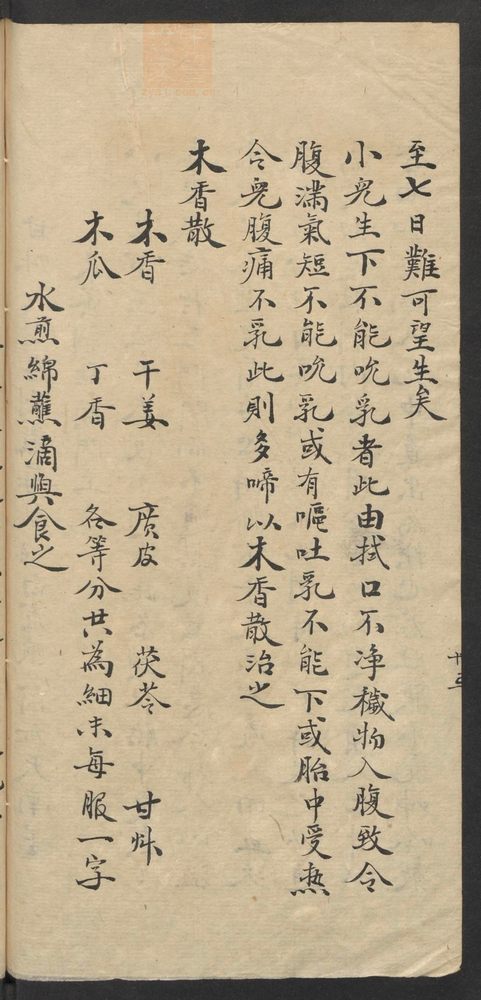 至七日難可望生矣
小兒生下不能吮乳者此由拭口不净穢物入腹致令
腹满氣短不能吮乳或有嘔吐乳不能下或胎中受热
令兒腹痛不乳此則多啼以木香散治之
木香散
木香 干姜 廣皮 茯苓 甘艸
木瓜 丁香 各等分共為細末每服一字
水煎綿蘸滴與食之
十五